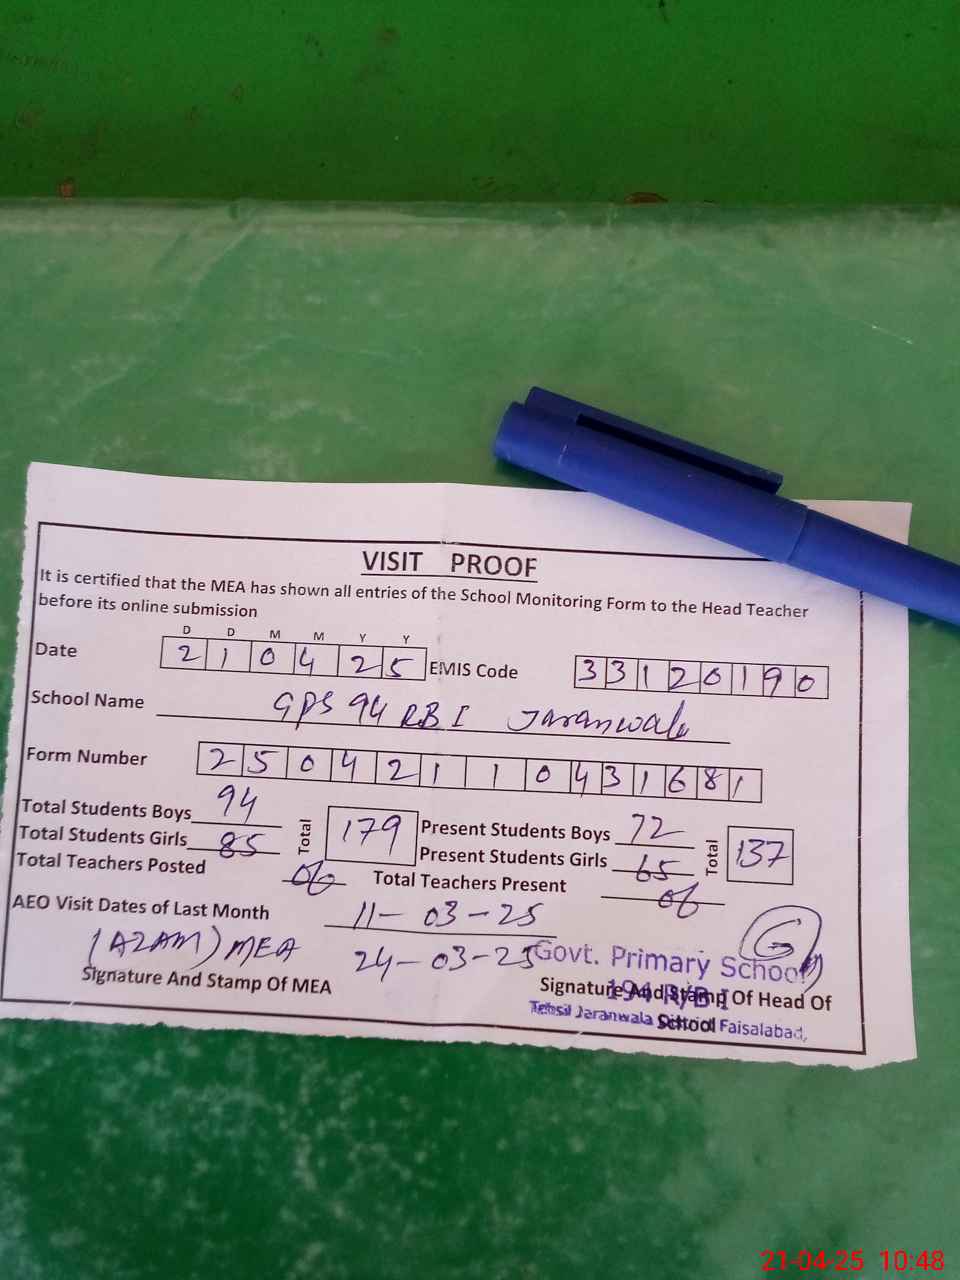 VISIT PROOF
It is certified that the MEA has shown all entries of the School Monitoring Form to the Head Teacher
before its online submission
D D M M Y Y
Date 2 1 0 4 2 5 EMIS Code 3 3 1 2 0 1 9 0
School Name GPS 94 RB I Jaranwala
Form Number 2 5 0 4 2 1 1 0 4 3 1 6 8 1
Total Students Boys 94 Total 179 Present Students Boys 72 Total 137
Total Students Girls 85 Present Students Girls 65
Total Teachers Posted 06 Total Teachers Present 06
AEO Visit Dates of Last Month 11-03-25
(AZAM) MEA 24-03-25 Govt. Primary School
Signature And Stamp Of MEA Signature And Stamp Of Head Of
194 R/B I
School
Tehsil Jaranwala District Faisalabad,
21-04-25 10:48